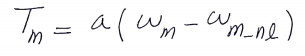 T_m = a ( ω_m − ω_{m_nl} )